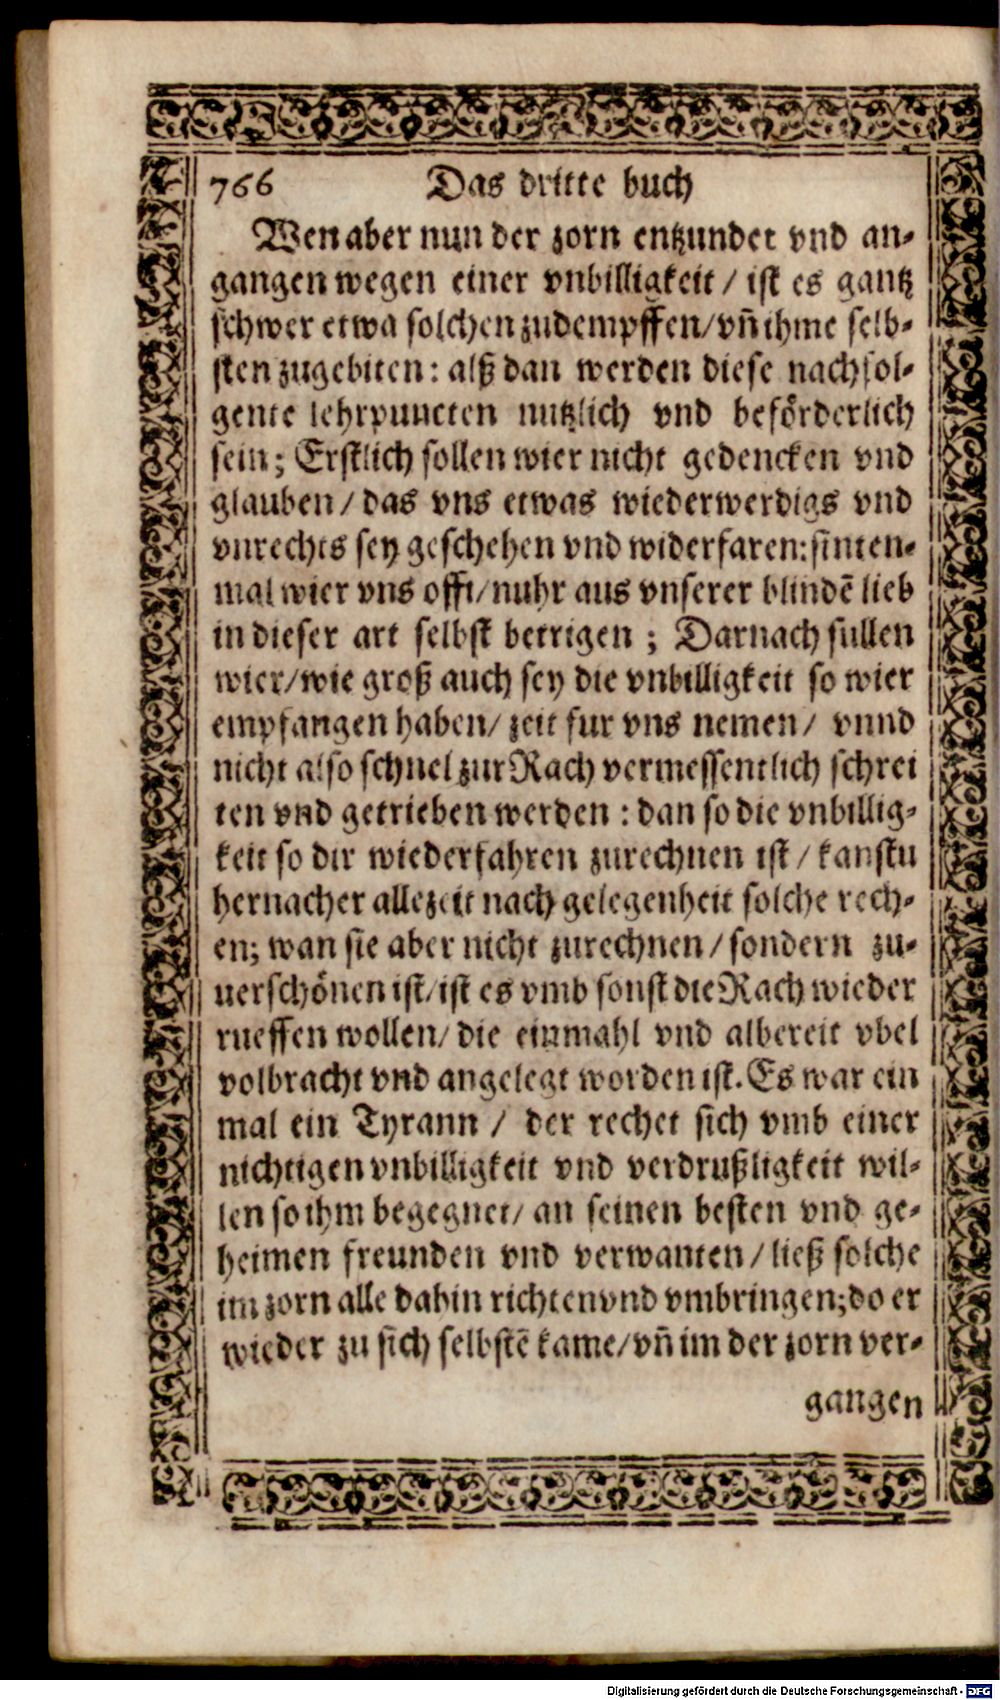 766 Das dritte buch
Wen aber nun der zorn entzundet vnd an-
gangen wegen einer vnbilligkeit / ist es gantz
schwer etwa solchen zudempffen/vn̄ ihme selb-
sten zugebiten: alß dan werden diese nachfol-
gente lehrpuncten nutzlich vnd beförderlich
sein; Erstlich sollen wier nicht gedencken vnd
glauben / das vns etwas wiederwerdigs vnd
vnrechts sey geschehen vnd widerfaren: sinten-
mal wier vns offt/nuhr aus vnserer blindē lieb
in dieser art selbst betrigen ; Darnach sullen
wier/wie groß auch sey die vnbilligkeit so wier
empfangen haben/ zeit fur vns nemen/ vnnd
nicht also schnel zur Rach vermessentlich schrei
ten vnd getrieben werden : dan so die vnbillig-
keit so dir wiederfahren zurechnen ist / kanstu
hernacher allezeit nach gelegenheit solche rech-
en; wan sie aber nicht zurechnen / sondern zu-
uerschönen ist/ist es vmb sonst die Rach wieder
rueffen wollen/ die einmahl vnd albereit vbel
volbracht vnd angelegt worden ist. Es war ein
mal ein Tyrann / der rechet sich vmb einer
nichtigen vnbilligkeit vnd verdrußligkeit wil-
len so ihm begegnet/ an seinen besten vnd ge-
heimen freunden vnd verwanten / ließ solche
im zorn alle dahin richten vnd vmbringen; do er
wieder zu sich selbstē kame/vn̄ im der zorn ver-
gangen
Digitalisierung gefördert durch die Deutsche Forschungsgemeinschaft - DFG